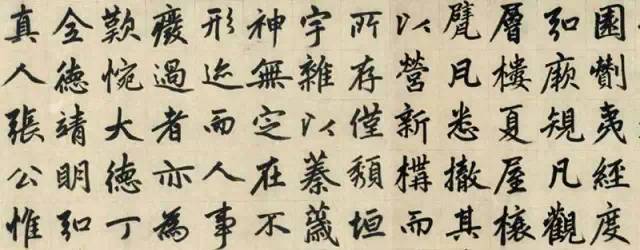 園剸夷經度
弘厥規凡觀
層樓夏屋榱
甓瓦悉撤其
以營新構而
所存僅頹垣
宇雜以蓁薉
神無定在不
形迹而人事
廢過者亦為
歎惋大德丁
全德靖明弘
真人張公惟